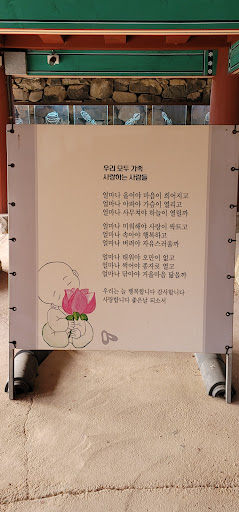 우리 모두 가족
사랑하는 사람들
얼마나 울어야 마음이 희어지고
얼마나 아파야 가슴이 열리고
얼마나 사무쳐야 하늘이 열릴까
얼마나 미워해야 사랑이 싹트고
얼마나 속아야 행복하고
얼마나 버려야 자유스러울까
얼마나 태워야 오만이 없고
얼마나 썩어야 종자로 열고
얼마나 닦아야 거울마음 닮을까
우리는 늘 행복합니다 감사합니다
사랑합니다 좋은날 되소서